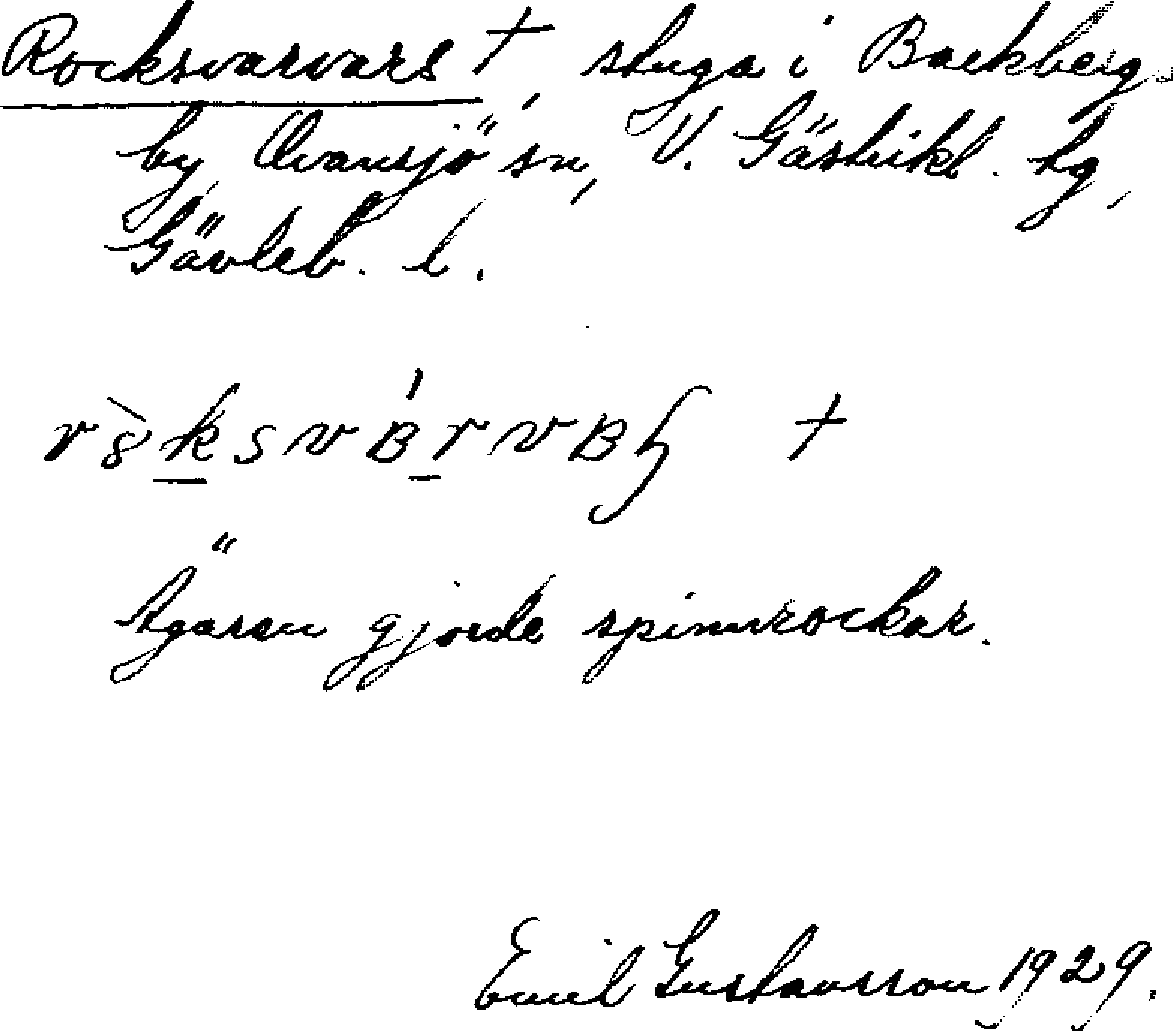 Rocksvarvars †, stuga i Backbergs
by, Ovansjö sn, V. Gästrikl. hg,
Gävleb. l.
†
Ägaren gjorde spinnrockar.
Emil Gustavsson 1929.